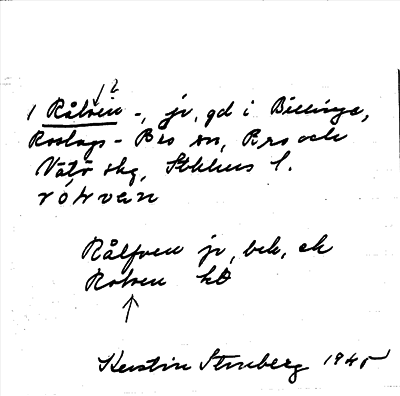 ?
1 Rålven -, jr, gd i Billinge,
Roslags-Bro sn, Bro och
Vätö skg, Sthlms l.
rò̀lvan
Rålfven jr, bek, ek
Rolven kB
Kerstin Stenberg 1945